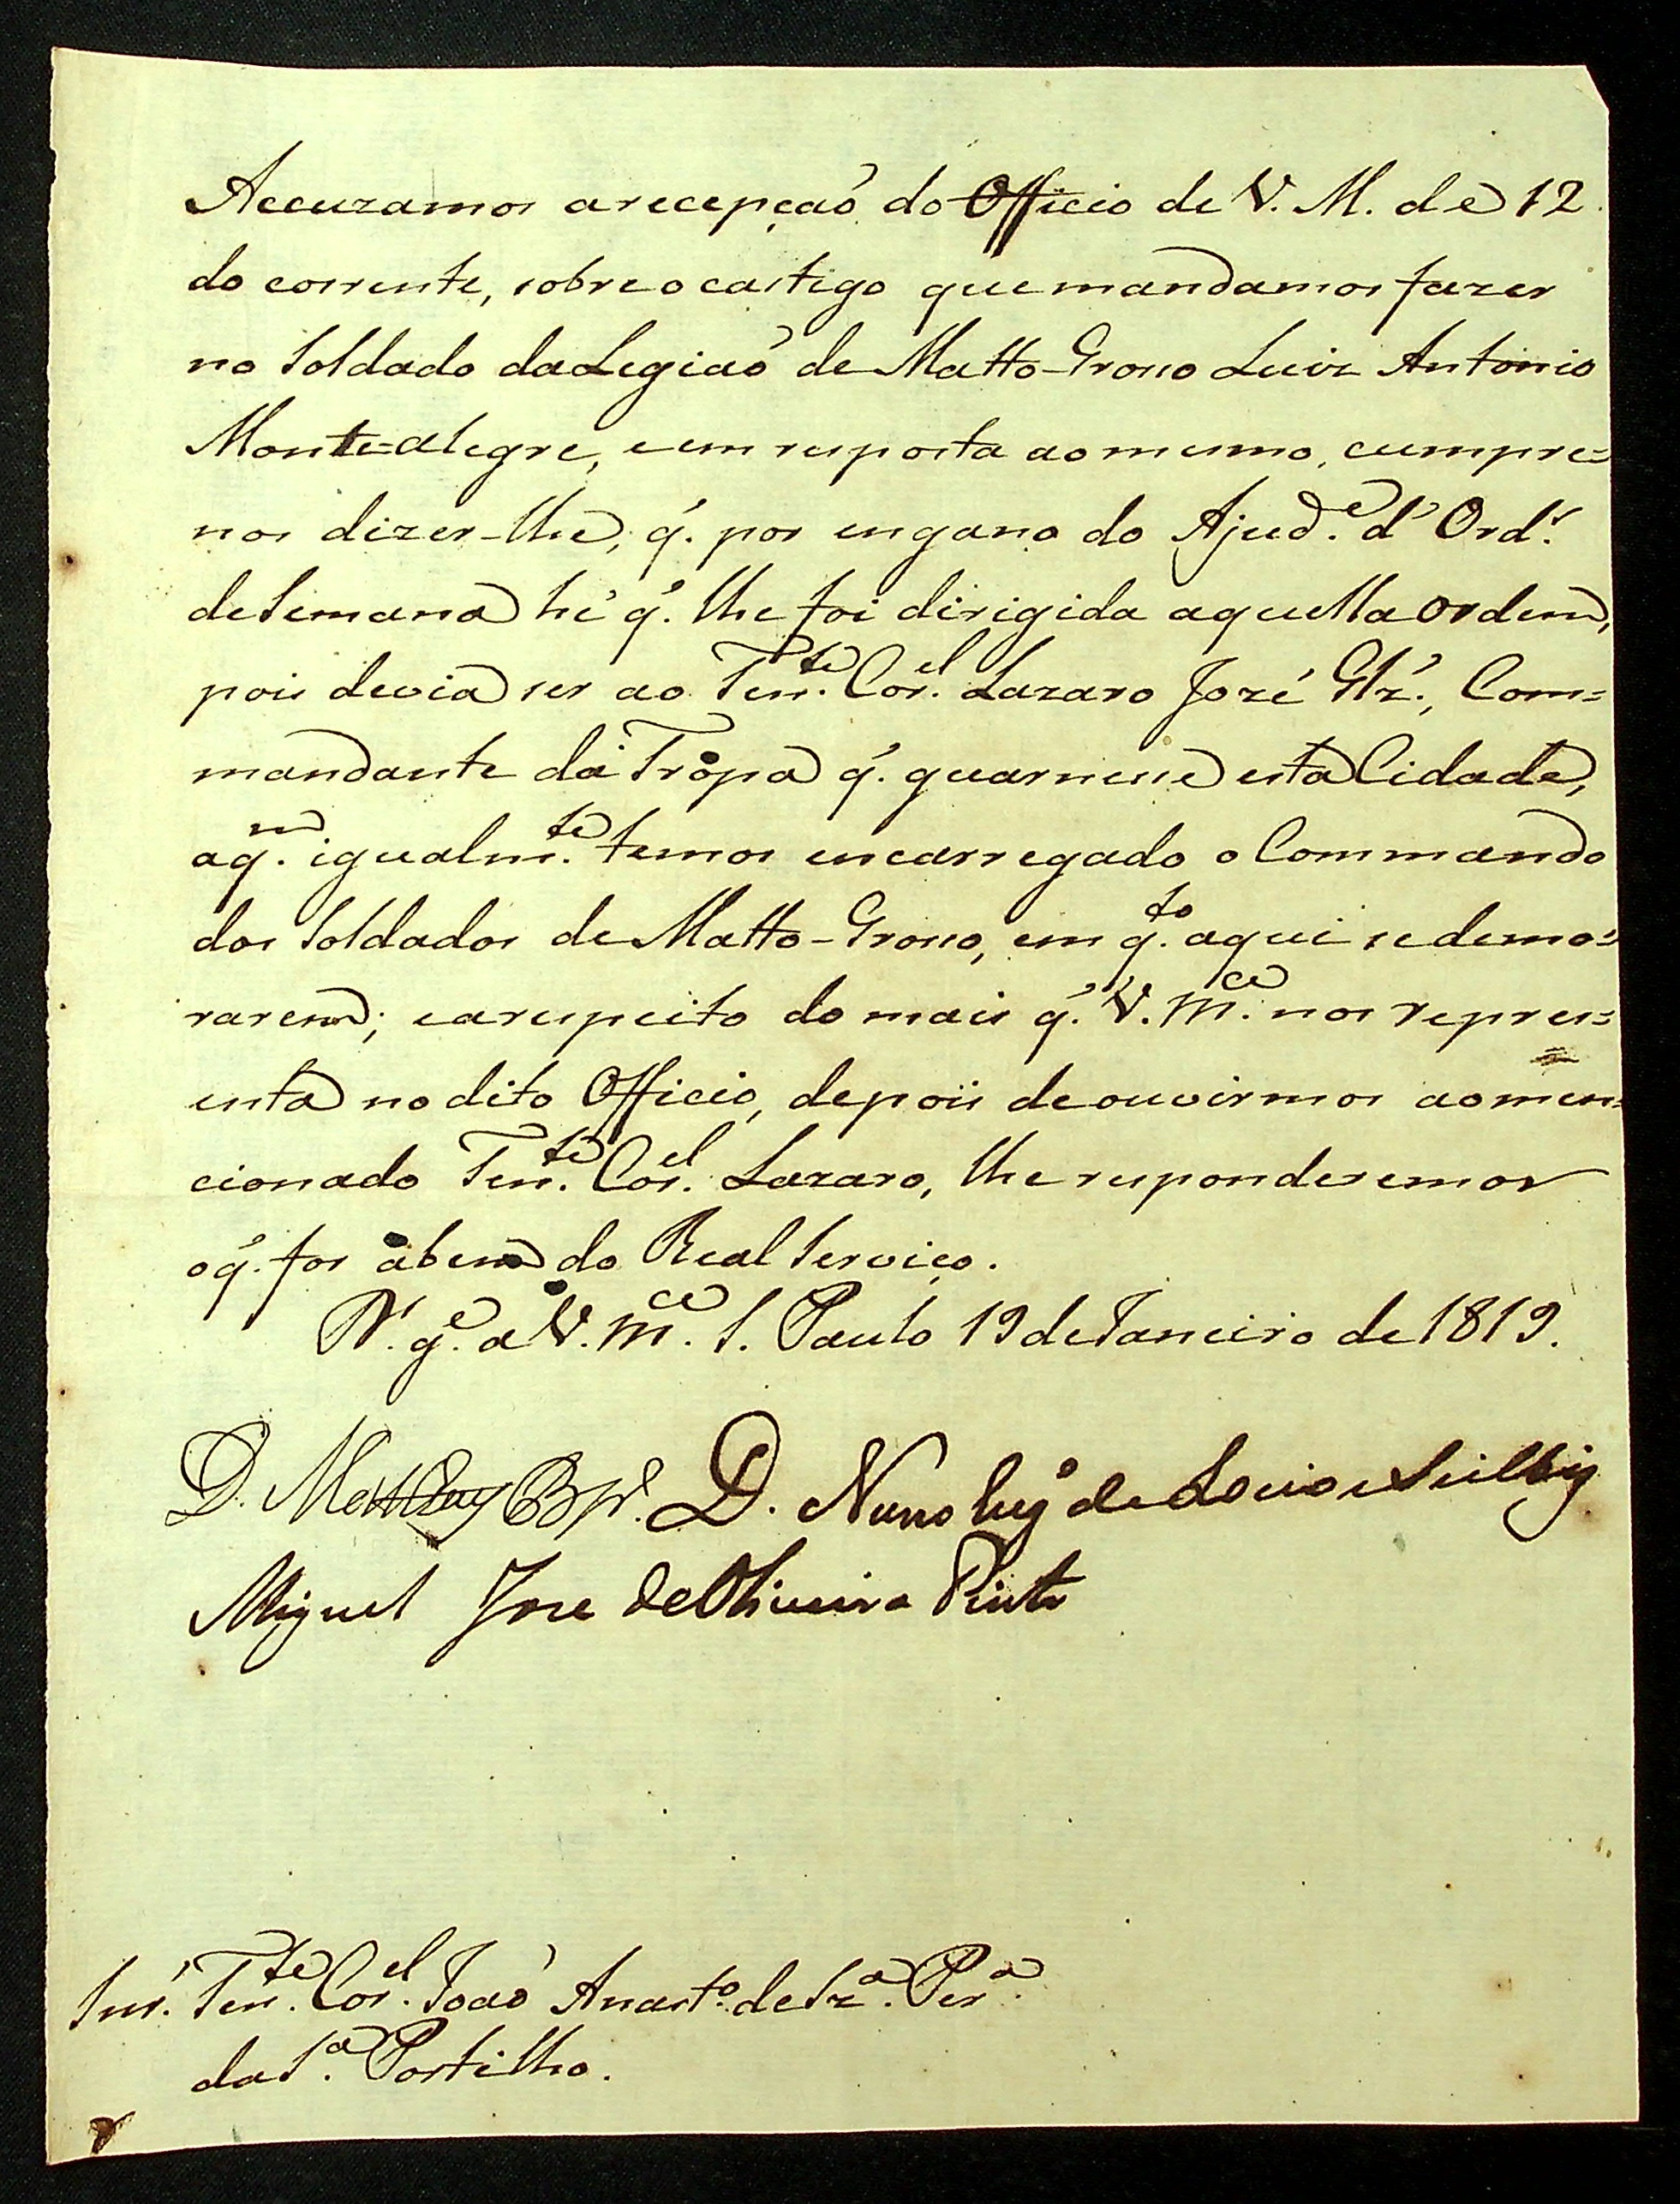 Accuzamos a recepçaõ do Officio de V. M. de 12
do corrente, sobre o castigo que mandamos fazer
no Soldado da Legiaõ de Matto-Grosso Luiz Antonio
Monte=alegre, e em resposta ao mesmo, cumpre=
nos dizer-lhe, q̃. por engano do Ajud.e d' Ord.s
de Semana hé q̃. lhe foi dirigida aquella ordem,
pois devia ser ao Ten.te Cor.el Lazaro Jozé Glz', Com=
mandante da Tropa q̃. guarnesse esta Cidade,
a q.m igualm.te temos encarregado o Commando
dos Soldados de Matto-Grosso, em q.to aqui se demo=
rarem; e a respeito do mais q̃. V. M.ce nos repres=
enta no dito Officio, depois de ouvirmos ao men=
cionado Ten.te Cor.el Lazaro, lhe responderemos
o q̃. for a bem do Real Serviço.
N. S. g.e a V. M.ce S. Paulo 19 de Janeiro de 1819.
D. Matheus Bp.o D. Nuno Eug.o de Locio e Seilbiz
Miguel Joze de Oliveira Pinto
Snr. Ten.te Cor.el Joaõ Anast.o de Sz.a Per.a
da S.a Portilho.